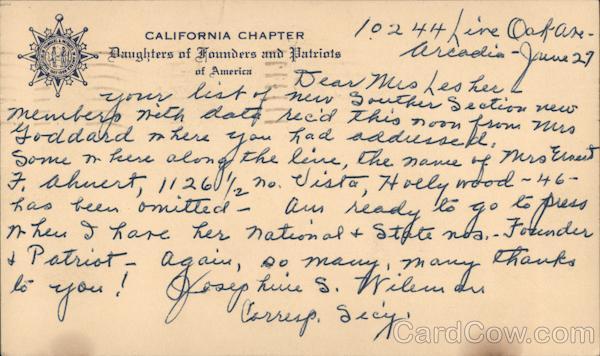 CALIFORNIA CHAPTER
Daughters of Founders and Patriots
of America
10244 Live Oak Ave-
Arcadia - June 27
Dear Mrs Lesher -
your list of new Souther Section new
members with data rec'd this noon from Mrs
Goddard where you had addressed.
Some where along the line, the name of Mrs Ernest
F. Ahnert, 1126 1/2 no. Vista, Hollywood - 46 -
has been omitted - Am ready to go to press
when I have her National & State nos. - Founder
& Patriot - Again, so many, many thanks
to you! Josephine S. Wileman
Corresp. Sec'y.
CardCow.com